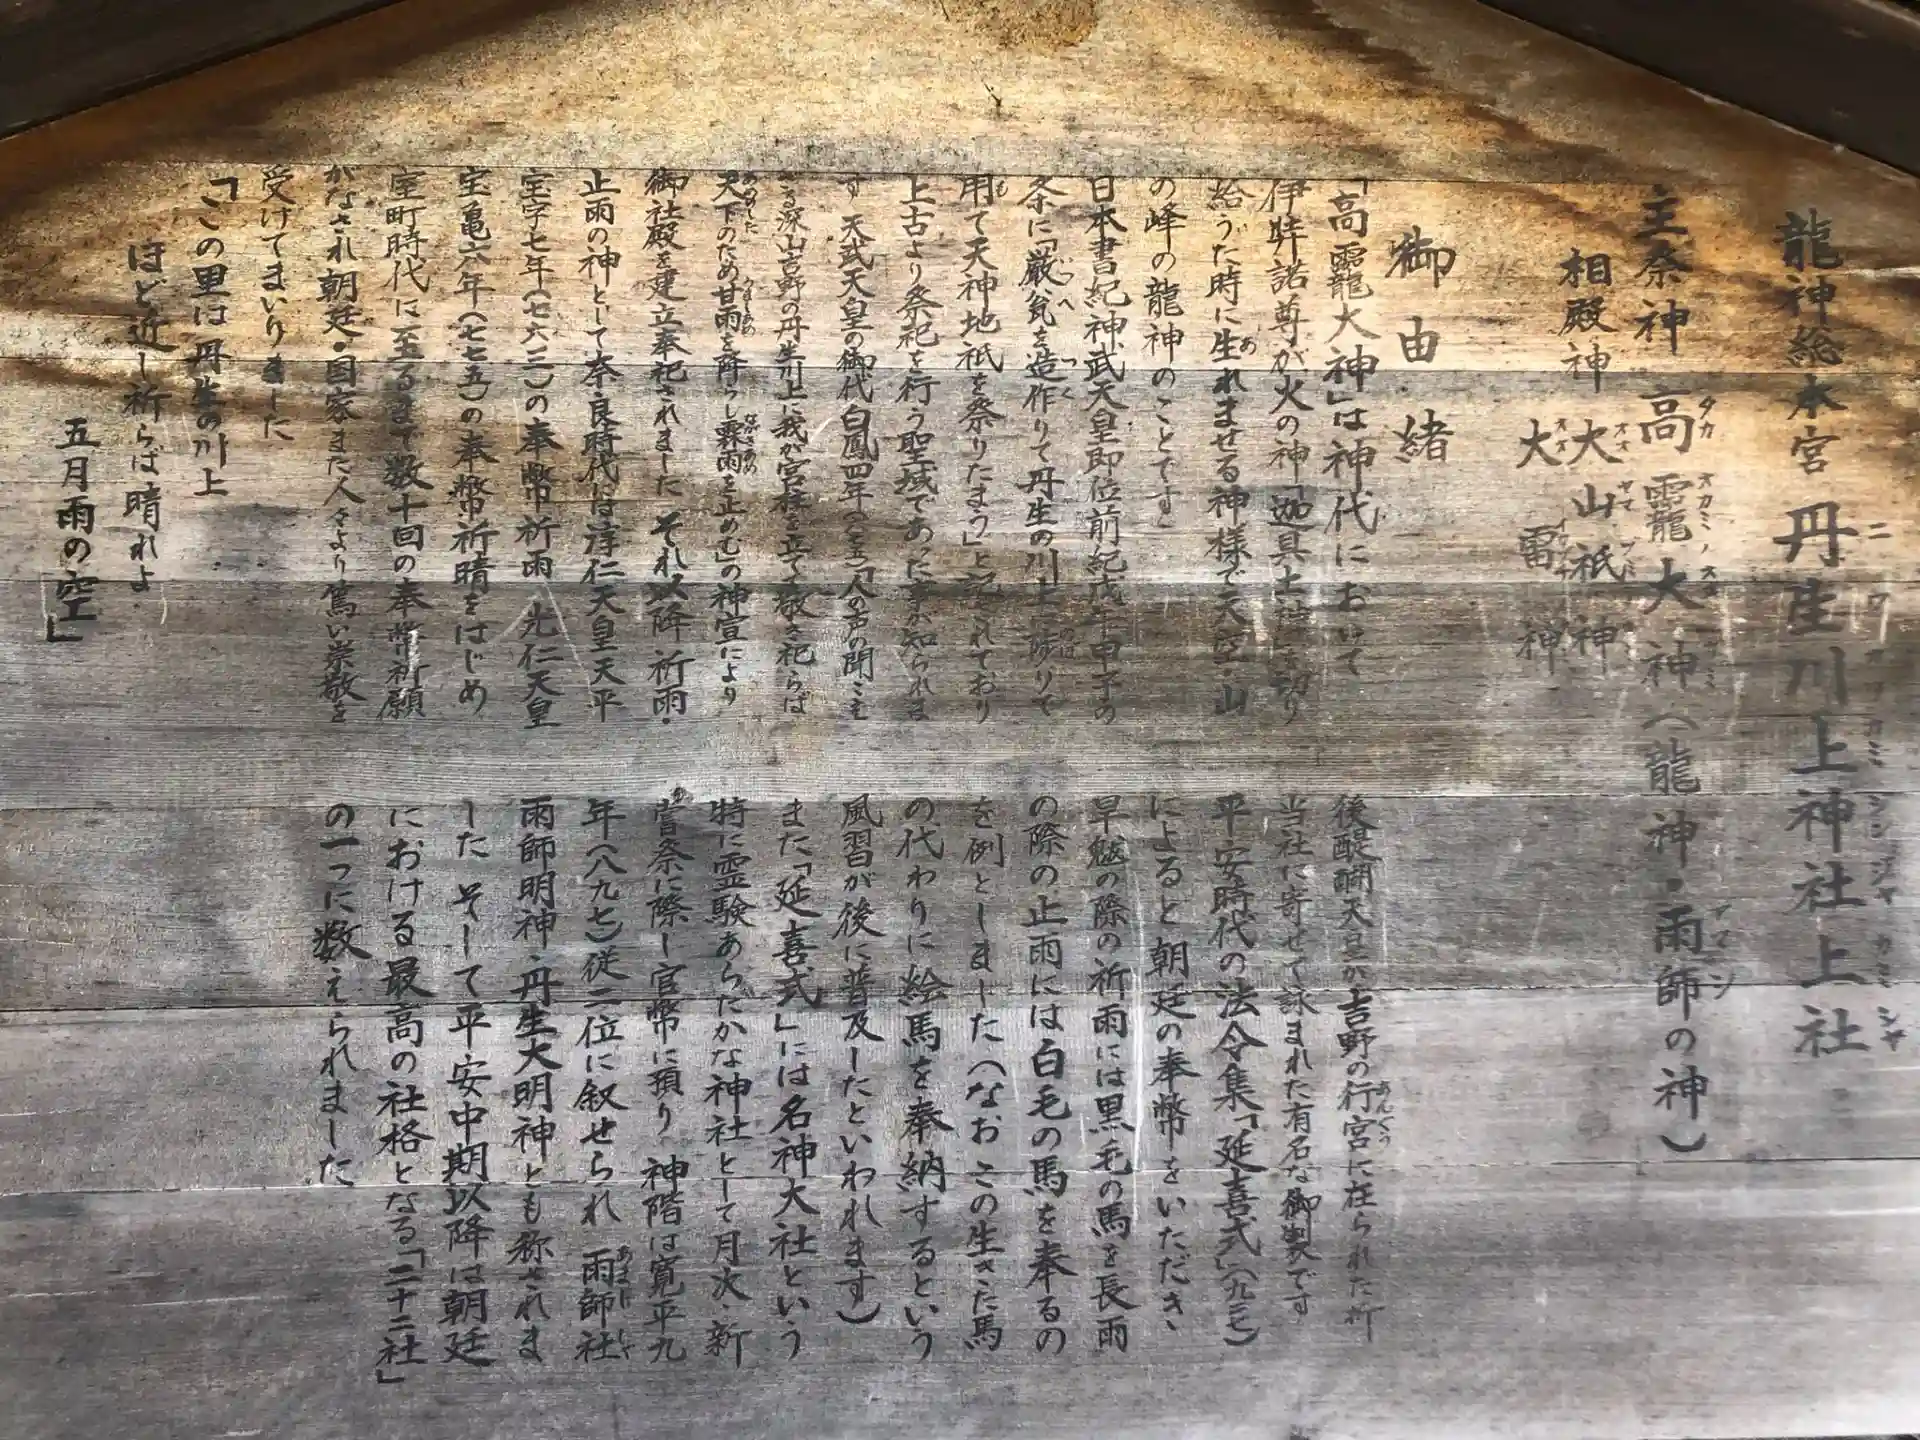 龍神総本宮 丹生川上神社上社
主祭神 高龗大神（龍神・雨師の神）
相殿神 大山祇神
大雷神
御由緒
「高龗大神」は神代において
伊弉諾尊が火の神「迦具土神」を切り
給うた時に生れませる神様で天空・山
の峰の龍神のことです
日本書紀神武天皇即位前紀戊午甲子の
条に「厳瓮を造作りて丹生の川上に陟りて
用て天神地祇を祭りたまう」と記されており
上古より祭祀を行う聖域であった事が知られま
す 天武天皇の御代白鳳四年「人の声の聞こえ
ざる深山吉野の丹生川上に我が宮柱を立て敬き祀らば
天下のため甘雨を降らし霖雨を止めむ」の神宣により
御社殿を建立奉祀されました それ以降 祈雨・
止雨の神として奈良時代は淳仁天皇天平
宝字七年（七六三）の奉幣祈雨 光仁天皇
宝亀六年（七七五）の奉幣祈晴をはじめ
室町時代に至るまで数十回の奉幣祈願
がなされ朝廷・国家また人々より篤い崇敬を
受けてまいりました
「この里は丹生の川上
ほど近し祈らば晴れよ
五月雨の空」
後醍醐天皇が吉野の行宮に在られた折
当社に寄せて詠まれた有名な御製です
平安時代の法令集「延喜式」（九二七）
によると朝廷の奉幣をいただき、
旱魃の際の祈雨には黒毛の馬を長雨
の際の止雨には白毛の馬を奉るの
を例としました（なおこの生きた馬
の代わりに絵馬を奉納するという
風習が後に普及したといわれます）
また「延喜式」には名神大社という
特に霊験あらたかな神社として月次、新
嘗祭に際し官幣に預り 神階は寛平九
年（八九七）従二位に叙せられ 雨師社
雨師明神・丹生大明神とも称されま
した そして平安中期以降は朝廷
における最高の社格となる「二十二社」
の一つに数えられました